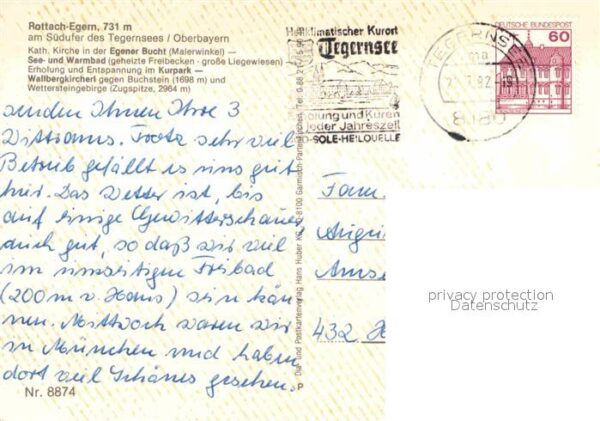 Rottach-Egern, 731 m
am Südufer des Tegernsees / Oberbayern
Kath. Kirche in der Egener Bucht (Malerwinkel) —
See- und Warmbad (geheizte Freibecken · große Liegewiesen)
Erholung und Entspannung im Kurpark —
Wallbergkircherl gegen Buchstein (1698 m) und
Wettersteingebirge (Zugspitze, 2964 m)
senden Ihnen Ihre 3
Trotz sehr viel
Betrieb gefällt es uns gut
hier. Das Wetter ist, bis
auf einige Gewitterschauer
auch gut, so daß wir viel
im unseitigen Freibad
(200m v. Haus) sein kön-
nen. Mittwoch waren wir
in München und haben
dort viel Schönes gesehen.
Nr. 8874
Heilklimatischer Kurort
Tegernsee
Erholung und Kuren
jeder Jahreszeit
D-SOLE-HEILQUELLE
TEGERNSEE
82
8180
DEUTSCHE BUNDESPOST
60
Postkartenverlag Hans Huber KG, D-8100 Garmisch-Partenkirchen, Tel.
P
Fam.
432 H
privacy protection
Datenschutz